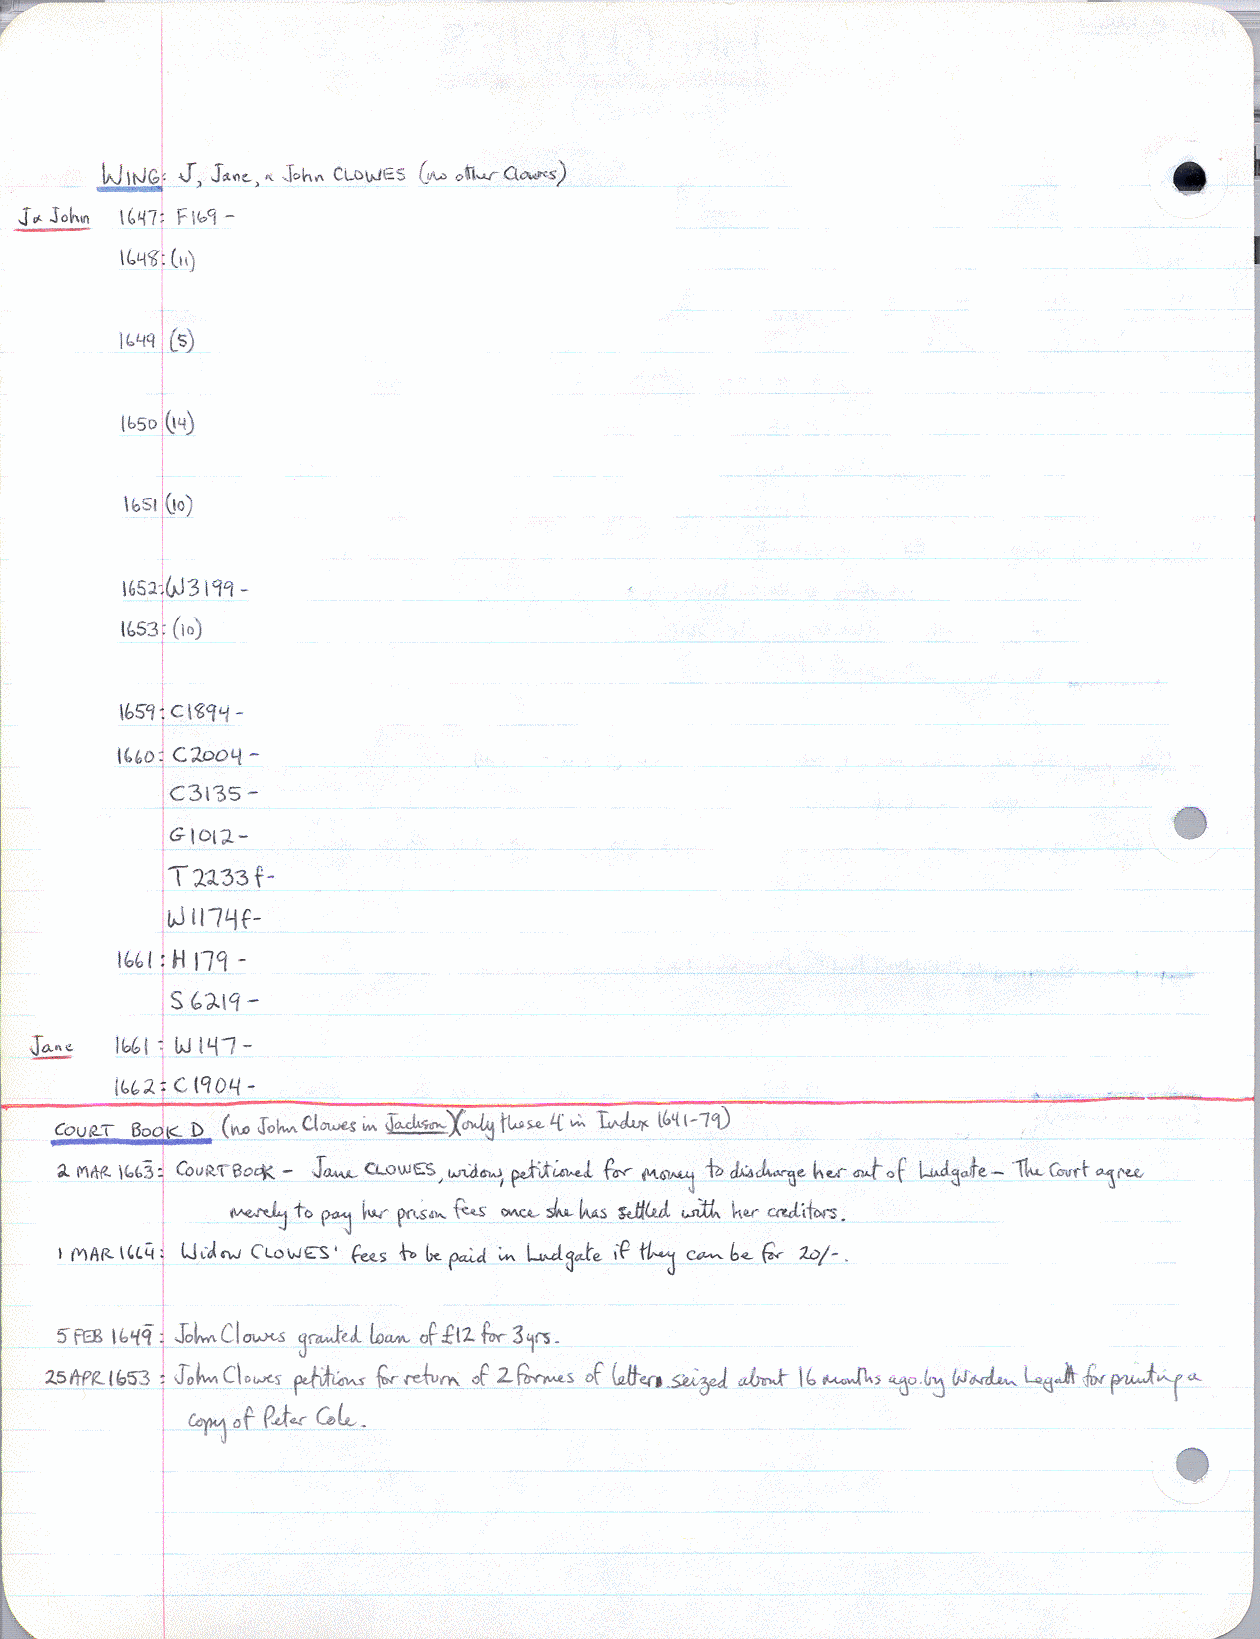 WING: J, Jane, & John CLOWES (no other Clowes)
J & John 1647: F169 -
1648: (11)
1649 (5)
1650 (14)
1651 (10)
1652: W3199 -
1653: (10)
1659: C1894 -
1660: C2004 -
C3135 -
G1012 -
T2233f -
W1174f -
1661: H179 -
S6219 -
Jane 1661: W147 -
1662: C1904 -
COURT BOOK D (no John Clowes in Jackson) (only these 4 in Index 1641-79)
2 MAR 1663: COURT BOOK - Jane CLOWES, widow, petitioned for money to discharge her out of Ludgate - The Court agree
merely to pay her prison fees once she has settled with her creditors.
1 MAR 1664: Widow CLOWES' fees to be paid in Ludgate if they can be for 20/-.
5 FEB 1649: John Clowes granted loan of £12 for 3 yrs.
25 APR 1653: John Clowes petitions for return of 2 formes of letters seized about 16 months ago by Warden Legatt for printing a
copy of Peter Cole.